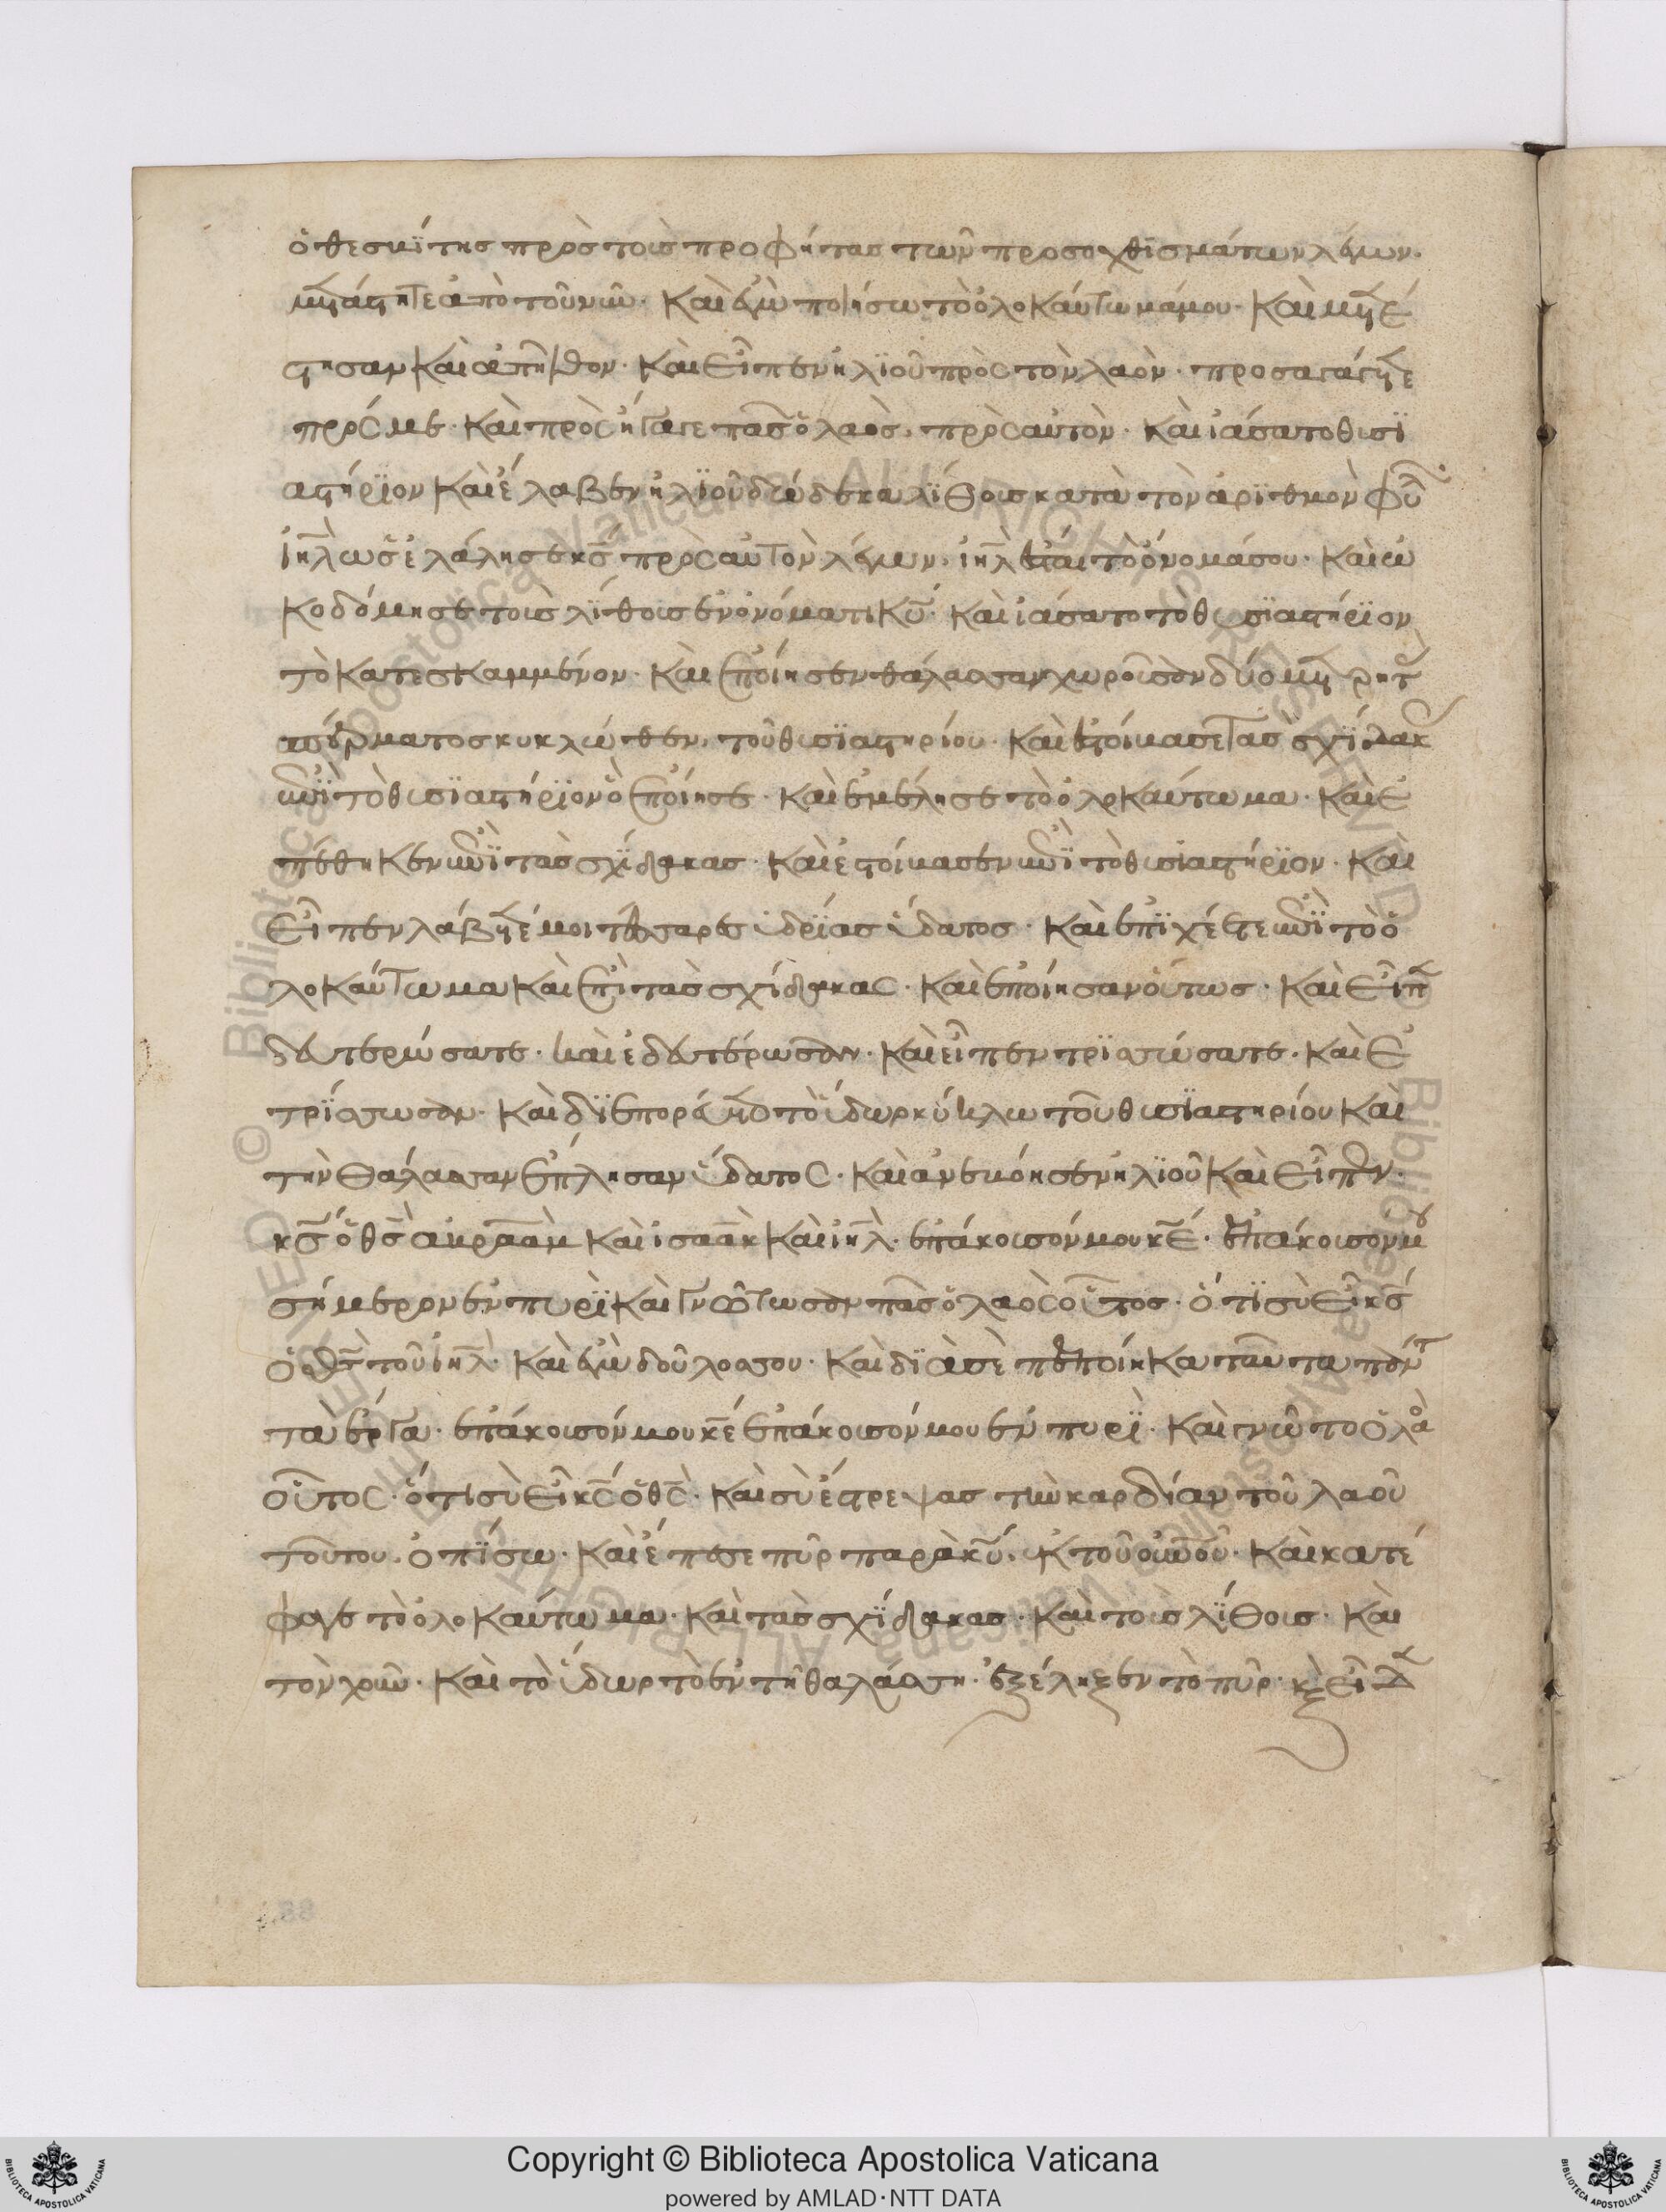 ὁ θεσβίτης πρὸς τοὺς προφήτας τῶν προσοχθϊσμάτων λέγων.
μετάστητε ἀπὸ τοῦ νῦν· καὶ ἐγὼ ποιήσω τὸ ὁλοκαύτωμά μου· καὶ μετέ
στησαν καὶ ἀπῆλθον· καὶ εἶπεν ἠλϊοῦ πρὸς τὸν λαὸν· προσαγάγετε
πρός με· καὶ προσήγαγε πᾶς ὁ λαὸς, πρὸς αὐτὸν· καὶ ἰάσατο θυσϊ
αστήρϊον καὶ ἔλαβεν ἠλϊοῦ δώδεκα λϊθους κατὰ τὸν ἀρϊθμὸν φυ
ιηλ ὡς ἐλάλησε κς πρὸς αὐτὸν λέγων. ιηλ ἔσται τὸ ὄνομά σου· καὶ ὠ
κοδόμησε τοὺς λϊθους ἐν ὀνόματι κυ· καὶ ἰάσατο τὸ θυσϊαστήρϊον
τὸ κατεσκαμμένον· καὶ ἐποίησεν θάλασσαν χωροῦσαν δύο μετρητ
ἀσπέρματος κυκλώθεν, τοῦ θυσϊαστηρίου· καὶ ἐστοίμασε τὰς σχϊδακ
ἐπὶ τὸ θυσϊαστήρϊον ὃ ἐποίησε· καὶ ἐμέλησε τὸ ὁλοκαύτωμα· καὶ ἐ
πέθηκεν ἐπὶ τὰς σχϊδακας· καὶ ἐστοίμασεν ἐπὶ τὸ θυσϊαστήρϊον· καὶ
εἶπεν λάβετέ μοι τέσσαρες ὑδρϊας ὕδατος· καὶ ἐπϊχέετε ἐπὶ τὸ ὁ
λοκαύτωμα καὶ ἐπὶ τὰς σχίδακας· καὶ ἐποίησαν οὕτως· καὶ εἶπε
δευτερώσατε· καὶ ἐδευτέρωσαν· καὶ εἶπεν τρϊσσώσατε· καὶ ἐ
τρϊσσωσαν· καὶ δϊεπορεύετο τὸ ὕδωρ κύκλω τοῦ θυσϊαστηρίου καὶ
τὴν θάλασσαν ἔπλησαν ὕδατος· καὶ ἀνεβόησεν ἠλϊοῦ καὶ εἶπεν.
κς ὁ θς ἀβραὰμ καὶ ἰσαὰκ καὶ ιηλ· ἐπάκουσόν μου κε· ἐπάκουσόν μου
σήμερον ἐν πυρϊ καὶ γνώτωσαν πᾶς ὁ λαὸς οὗτος· ὅτϊ σὺ εἶ κς
ὁ θς τοῦ ιηλ· καὶ ἐγὼ δοῦλος σου· καὶ δϊὰ σὲ πεποίηκα ταῦτα πάντ
τὰ ἔργα· ἐπάκουσόν μου κε ἐπάκουσόν μου ἐν πυρϊ· καὶ γνῶτο ὁ λαὸ
οὗτος· ὅτι σὺ εἶ κς ὁ θς· καὶ σὺ ἔστρεψας τὴν καρδίαν τοῦ λαοῦ
τούτου. ὀπϊσω· καὶ ἔπεσε πῦρ παρὰ κυ. ἐκ τοῦ οὐνου· καὶ κατέ
φαγε τὸ ὁλοκαύτωμα· καὶ τὰς σχϊδακας· καὶ τοὺς λϊθους· καὶ
τὸν χοῦν· καὶ τὸ ὕδωρ τὸ ἐν τῆ θαλάσση· ἐξέληξεν τὸ πῦρ· κ εἶδε
Copyright © Biblioteca Apostolica Vaticana
powered by AMLAD·NTT DATA